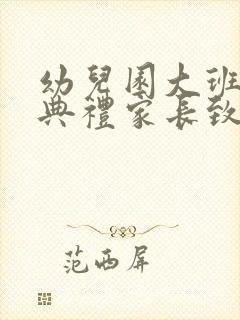 幼兒園大班
典禮家長致
范西屏